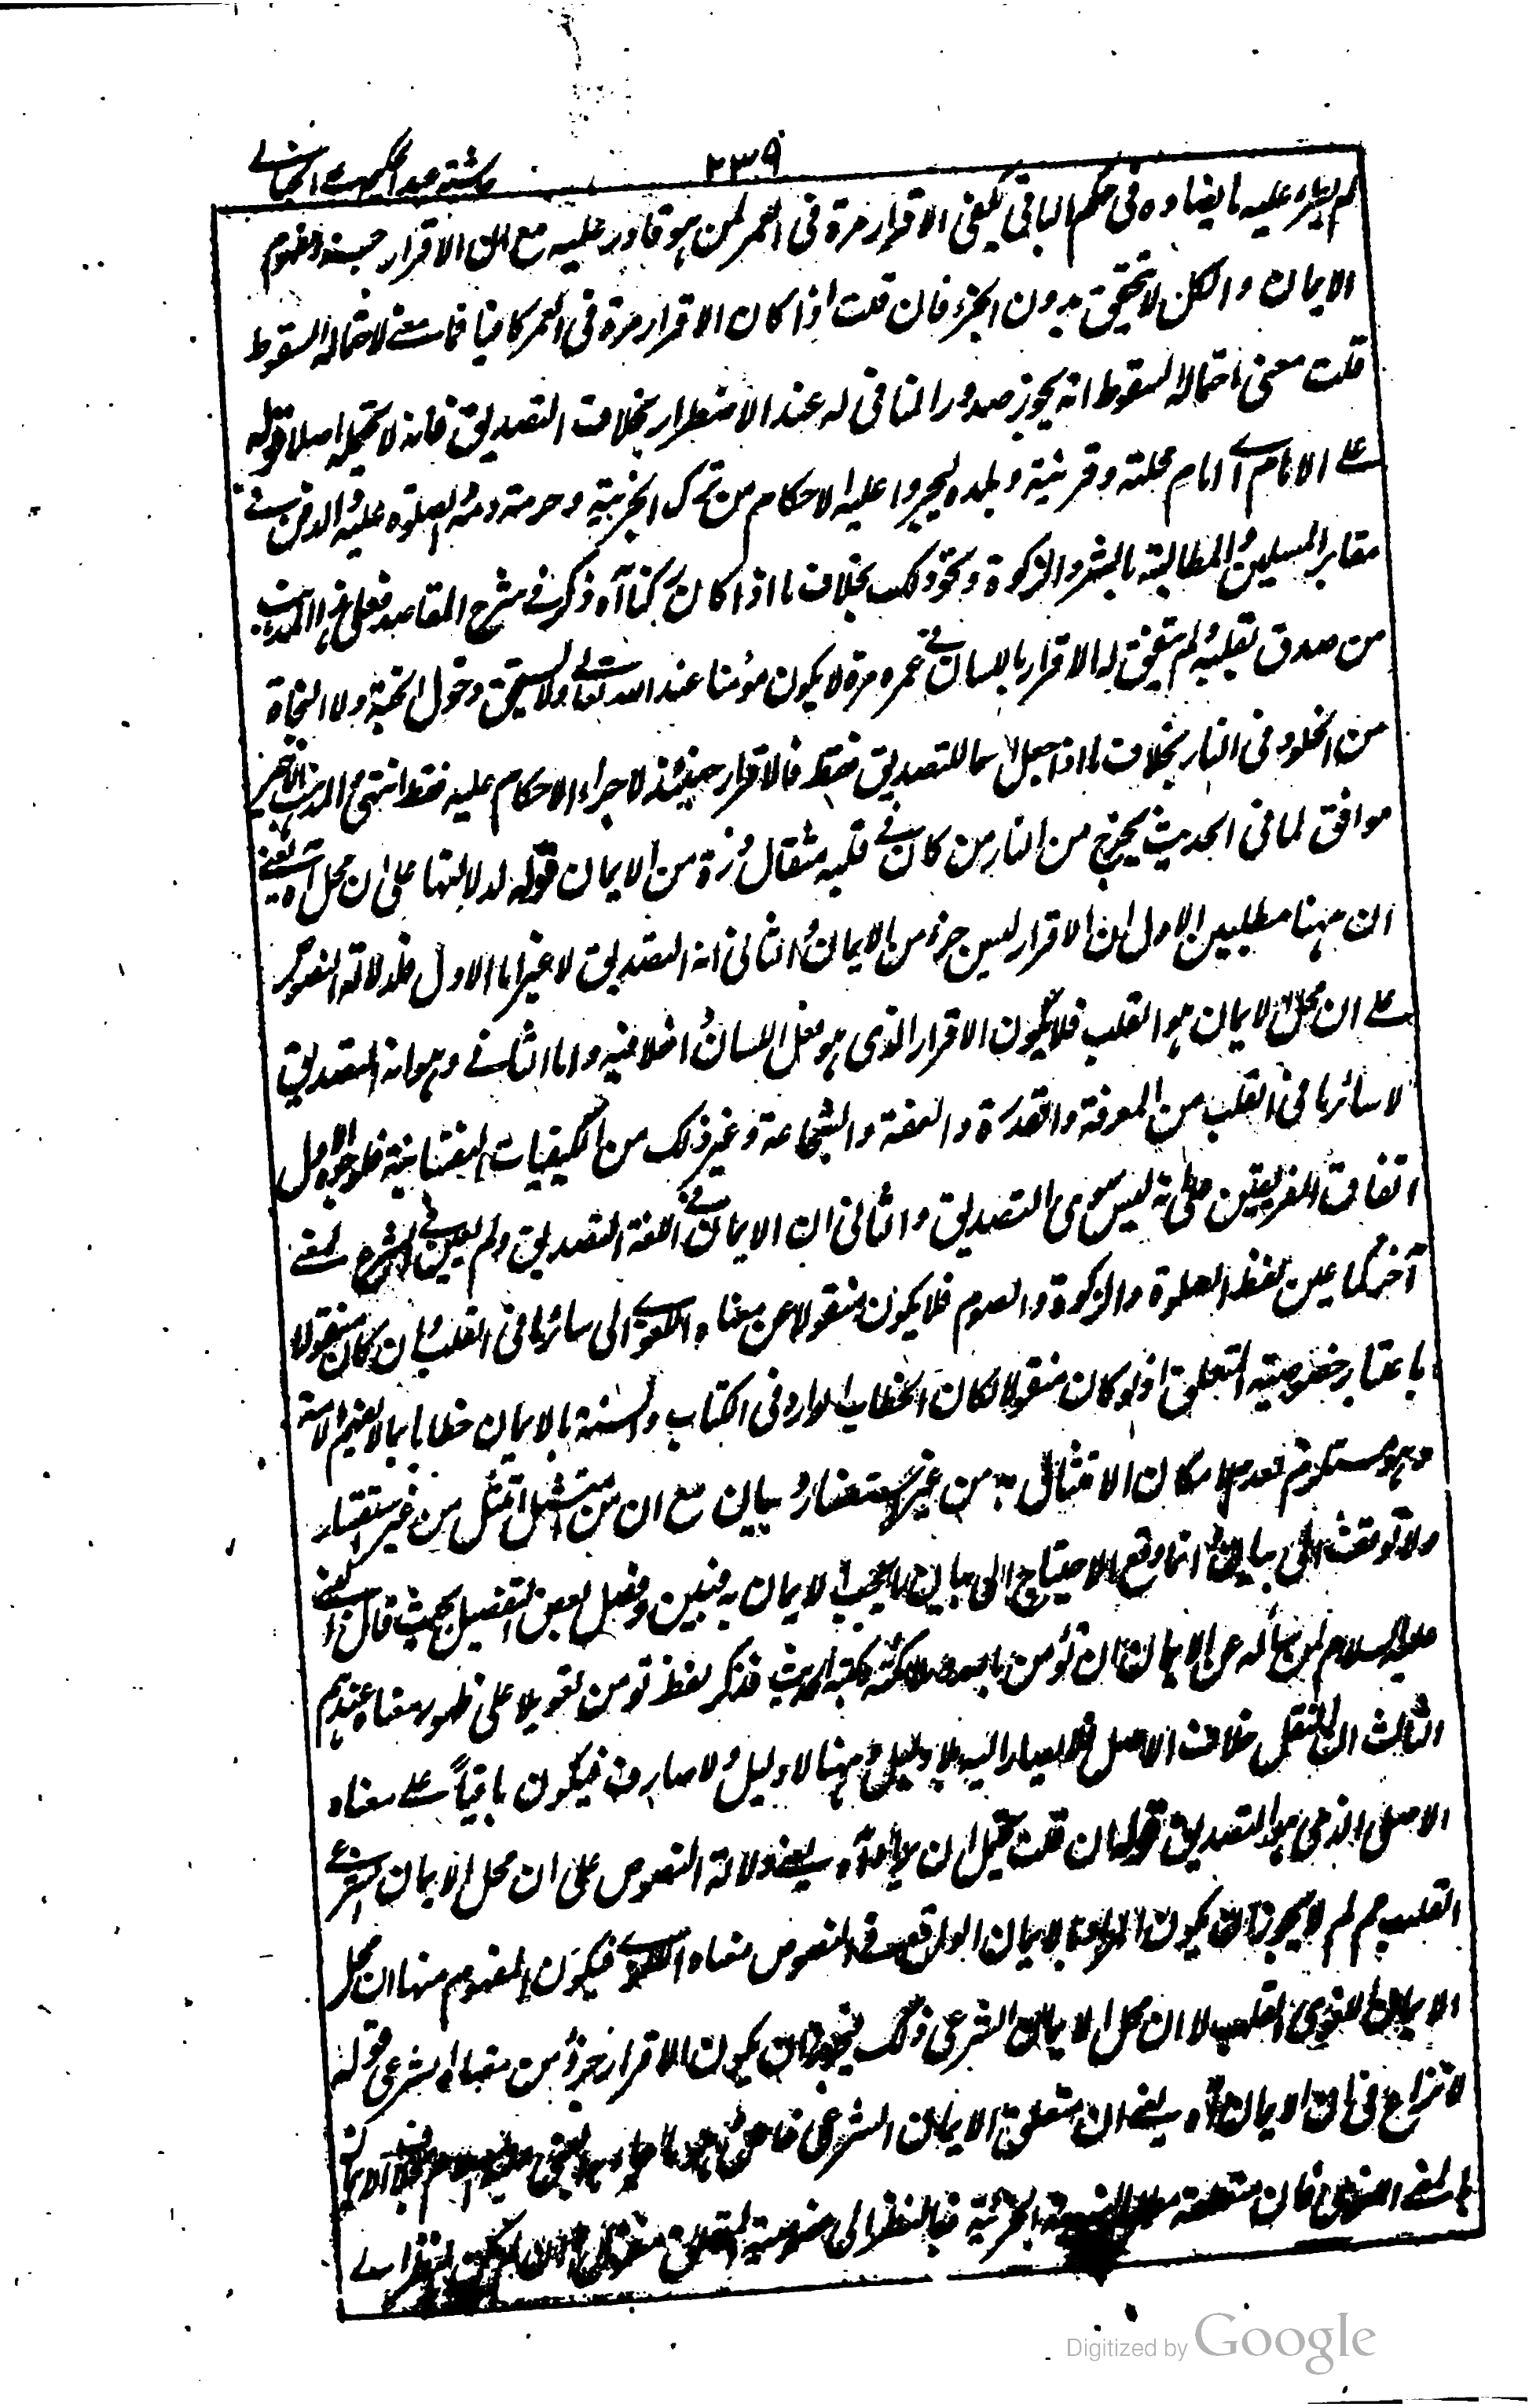 ٢٣٩
حاشية عبد الحكيم على الخيالي
لم يطرء عليه ما يضاده فى حكم الباقي يكفى الاقرار مرة فى العمر لمن هو قادر عليه مع ان الاقرار جزء مفهوم
الايمان والكل لا يتحقق بدون الجزء فان قلت اذا كان الاقرار مرة فى العمر كافيا فما معنى لاحتماله السقوط
قلت معنى احتماله السقوط انه يجوز صدور المنافى له عند الاضطرار بخلاف التصديق فانه لا يحتمله اصلا قوله
على الامام اى امام محلته وقريته وبلده ليجروا عليه الاحكام من ترك الجزية وحرمة دمه والصلوة عليه والدفن فى
مقابر المسلمين والمطالبة بالعشر والزكوة ونحو ذلك بخلاف ما اذا كان ركنا آه ذكر فى شرح المقاصد فعلى هذا المذهب
من صدق بقلبه ولم يتفق له الاقرار باللسان فى عمره مرة لا يكون مؤمنا عند الله تعالى ولا يستحق دخول الجنة ولا النجاة
من الخلود فى النار بخلاف ما اذا جعل اسما للتصديق فقط فالاقرار حينئذ لاجراء الاحكام عليه فقط انتهى والمذهب الاخير
موافق لما فى الحديث يخرج من النار من كان فى قلبه مثقال ذرة من الايمان قوله لدلالتها على ان محل آه يعنى
ان ههنا مطلبين الاول ان الاقرار ليس جزء من الايمان والثانى انه التصديق لا غير اما الاول فلدلالة النصوص
على ان محل الايمان هو القلب فلا يكون الاقرار الذى هو فعل اللسان داخلا فيه واما الثانى وهو انه التصديق
لا سائر ما فى القلب من المعرفة والقدرة والعفة والشجاعة وغير ذلك من الكيفيات النفسانية فلوجوه الاول
اتفاق الفريقين على انه ليس سوى التصديق والثانى ان الايمان فى اللغة التصديق ولم يعين فى الشرع لمعنى
آخر كما عين لفظ الصلوة والزكوة والصوم فلا يكون منقولا عن معناه اللغوى الى سائر ما فى القلب وان كان منقولا
باعتبار خصوصية المتعلق اذ لو كان منقولا لكان الخطاب الوارد فى الكتاب والسنة بالايمان خطابا بما لا يفهم الامة
وهو مستلزم لعدم امكان الامتثال به من غير استفسار وبيان مع ان من امتثل امتثل من غير استفسار
ولا توقف الى بيان وانما وقع الاحتياج الى بيان ما يجب الايمان به فبين وفصل بعض التفصيل بحيث قال النبى
عليه السلام لمن سأله عن الايمان ان تؤمن بالله وملائكته وكتبه الحديث فذكر لفظ تؤمن تعويلا على ظهور معناه عندهم
الثالث ان النقل خلاف الاصل فلا يصار اليه بلا دليل وههنا لا دليل ولا صارف فيكون باقيا على معناه
الاصلى الذى هو التصديق قوله فان قلت يحتمل ان يراد آه يعنى دلالة النصوص على ان محل الايمان الشرعى
القلب مم لم لا يجوز ان يكون المراد بالايمان الواقع فى النصوص معناه اللغوى فيكون المفهوم منها ان محل
الايمان اللغوى القلب لا ان محل الايمان الشرعى ذلك فيجوز ان يكون الاقرار جزؤ من معناه الشرعى قوله
لا نزاع فى ان الايمان آه يعنى ان متعلق الايمان الشرعى خاص
بالمعنى اللغوى فان متعلقه الخبرية فبالنظر الى خصوصية المتعلق منقول
Digitized by Google